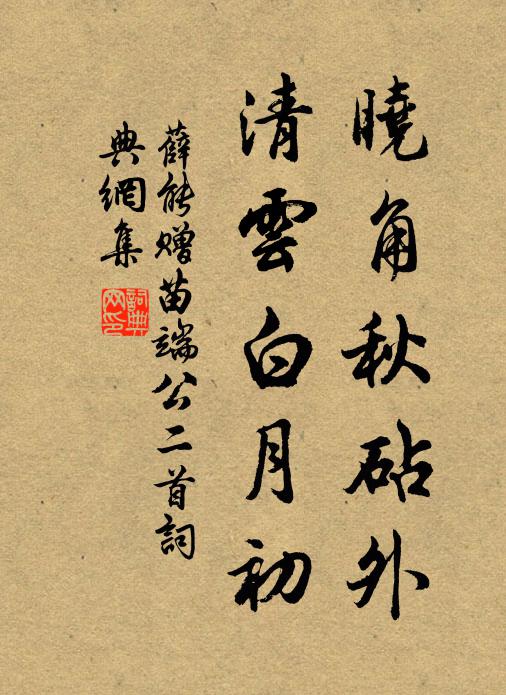 曉角秋砧外
清雲白月初
薛能贈苗端公二首詞
典網集
詞典網印